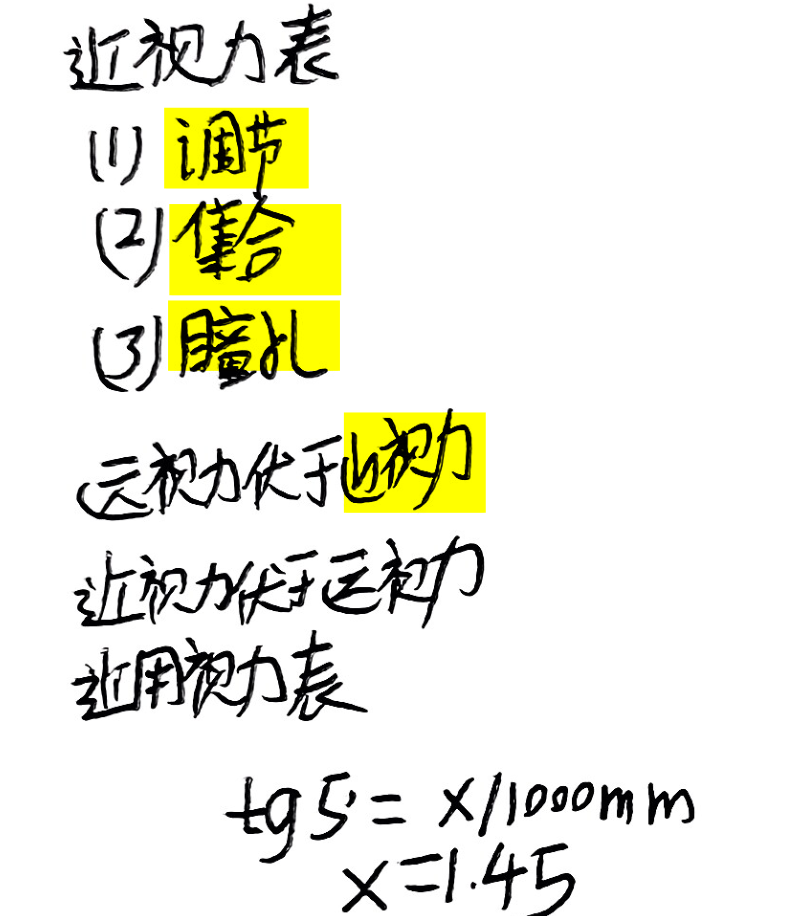 近视力表
(1) 调节
(2) 集合
(3) 瞳孔
远视力伏于近视力
近视力伏于远视力
近用视力表
tg5'= x/1000mm
x=1.45